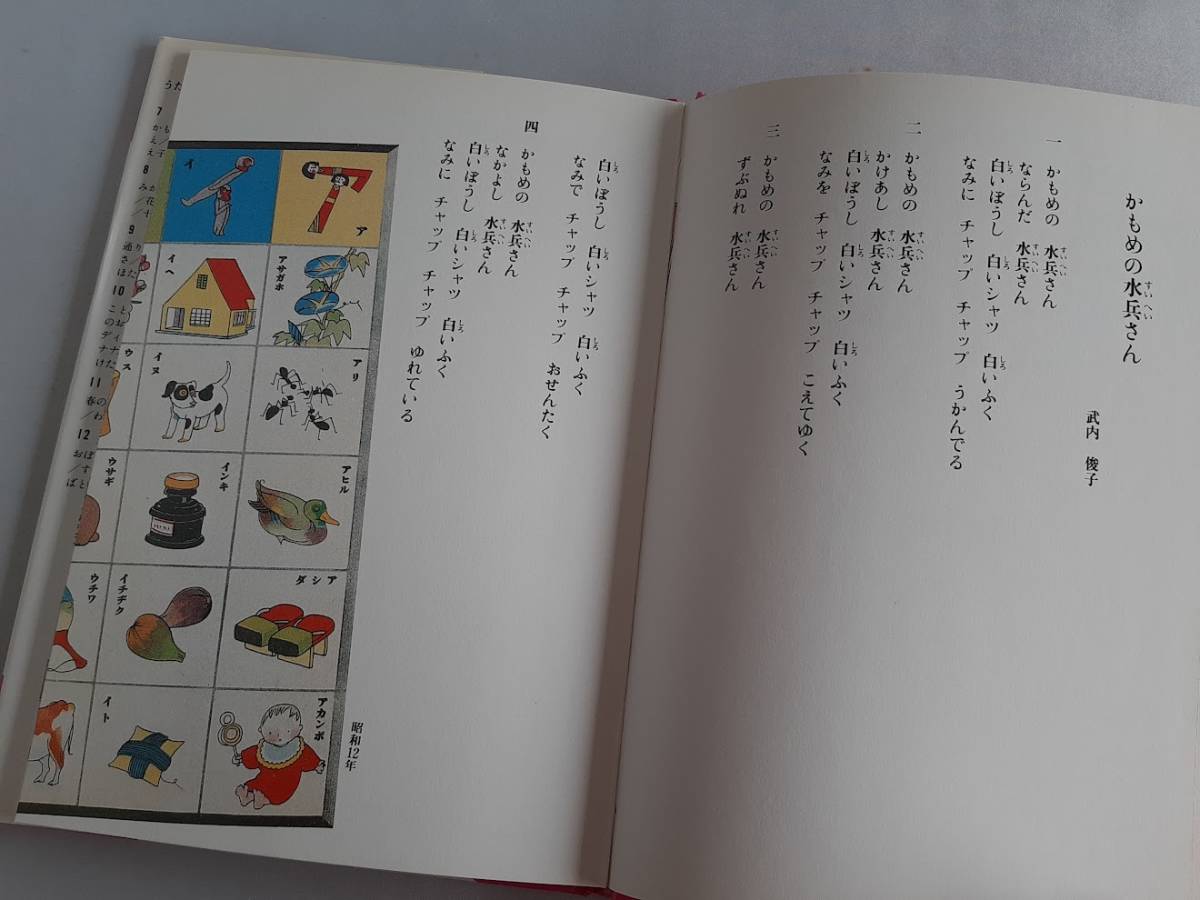 かもめの水兵さん
すいへい
武内 俊子
一 かもめの 水兵さん
すいへい
ならんだ 水兵さん
すいへい
白いぼうし 白いシャツ 白いふく
しろ しろ
なみに チャップ チャップ うかんでる
二 かもめの 水兵さん
すいへい
かけあし 水兵さん
すいへい
白いぼうし 白いシャツ 白いふく
しろ しろ
なみを チャップ チャップ こえてゆく
三 かもめの 水兵さん
すいへい
ずぶぬれ 水兵さん
すいへい
白いぼうし 白いシャツ 白いふく
しろ しろ
なみで チャップ チャップ おせんたく
四 かもめの 水兵さん
すいへい
なかよし 水兵さん
すいへい
白いぼうし 白いシャツ 白いふく
しろ しろ
なみに チャップ チャップ ゆれている
昭和12年
ア
アサガホ
アリ
アヒル
アシダ
アカンボ
イ
イヘ
イヌ
インキ
イチヂク
イト
ウス
ウサギ
ウチワ
うた
7
8
9
10
11
12